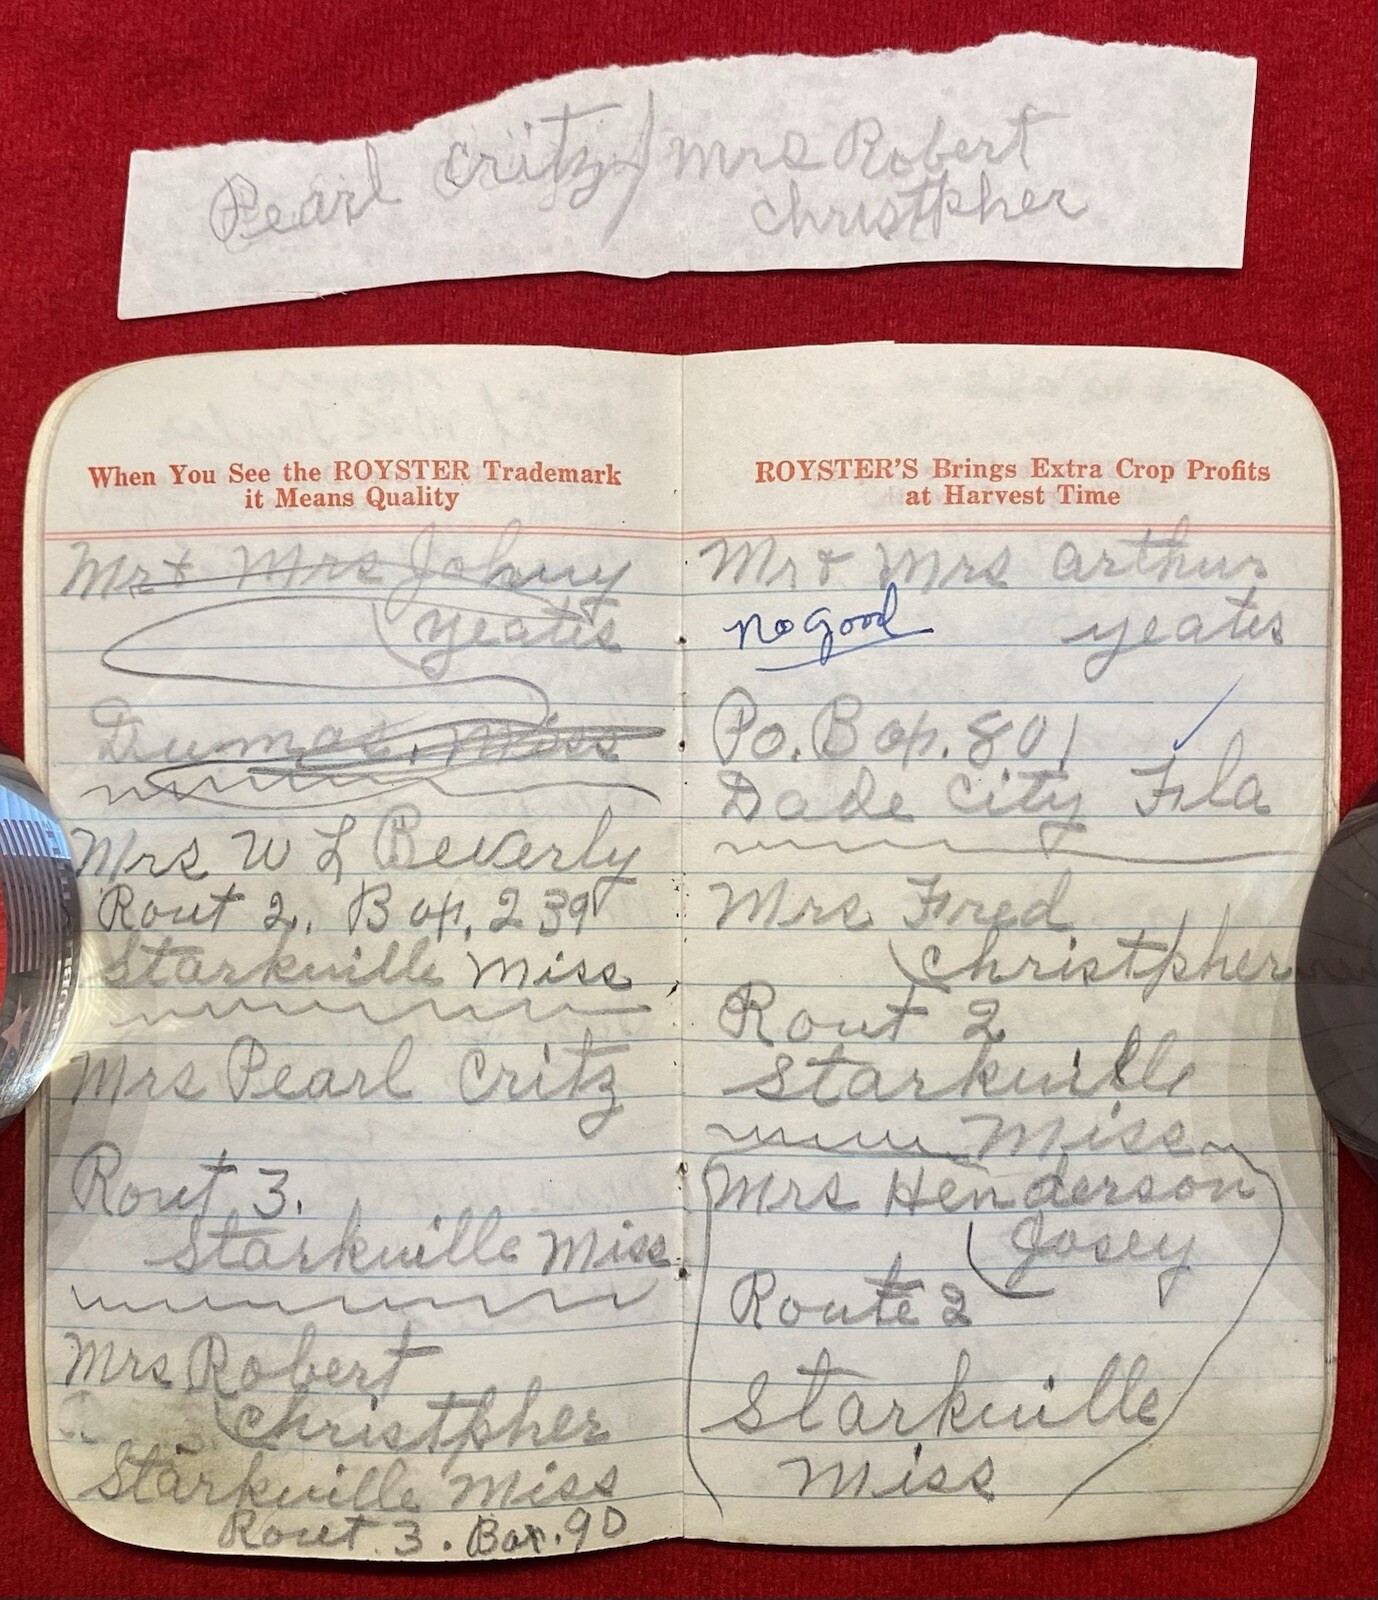 Pearl Critz / Mrs Robert
Christpher
When You See the ROYSTER Trademark
it Means Quality
Mr + Mrs Johnny
Yeates
Dumas, Miss
Mrs W L Beverly
Rout 2. Box. 239
Starkville Miss
Mrs Pearl Critz
Rout 3.
Starkville Miss
Mrs Robert
Christpher
Starkville Miss
Rout. 3. Box. 90
ROYSTER'S Brings Extra Crop Profits
at Harvest Time
Mr & Mrs Arthur
no good yeates
Po. Box. 801
Dade City Fla
Mrs Fred
Christpher
Rout 2
Starkville
Miss
Mrs Henderson
Josey
Route 2
Starkville
Miss